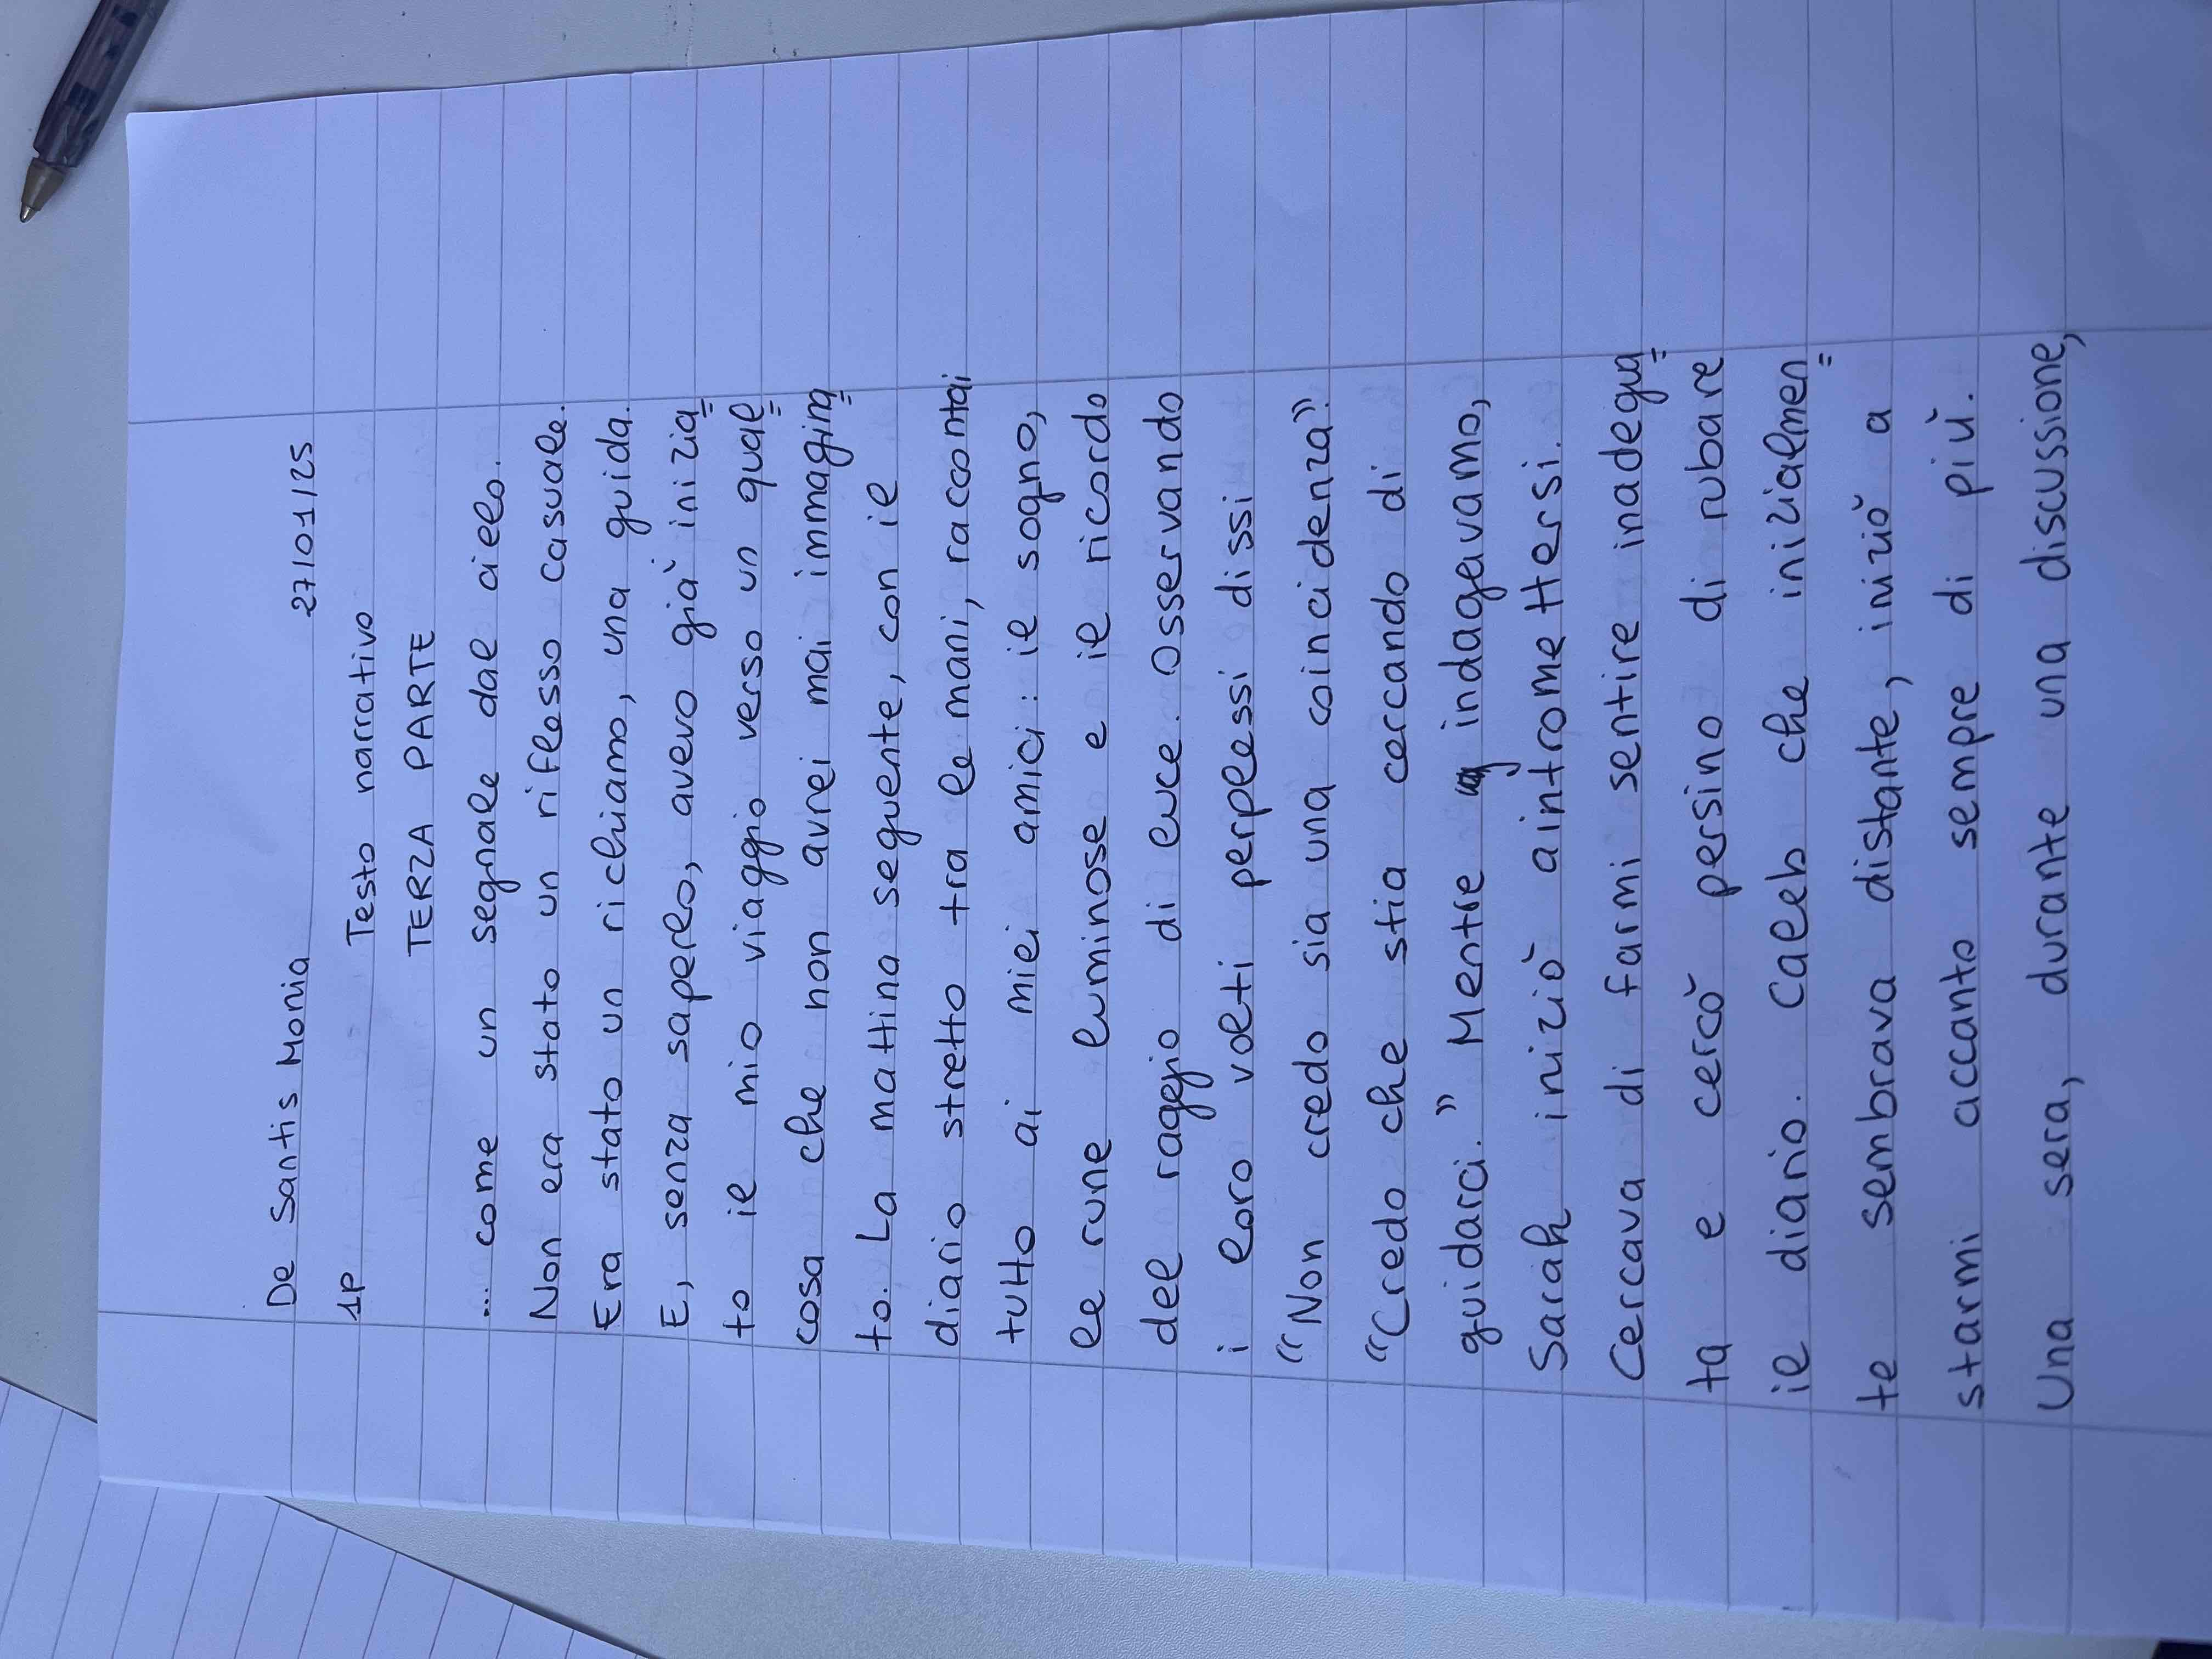 De Santis Monia 27/01/25
1P Testo narrativo
TERZA PARTE
... come un segnale dal cielo.
Non era stato un riflesso casuale.
Era stato un richiamo, una guida.
E, senza saperlo, avevo già inizia=
to il mio viaggio verso un qual=
cosa che non avrei mai immagina=
to. La mattina seguente, con il
diario stretto tra le mani, raccontai
tutto ai miei amici: il sogno,
le rune luminose e il ricordo
del raggio di luce. Osservando
i loro volti perplessi dissi
“Non credo sia una coincidenza”.
“Credo che stia cercando di
guidarci.” Mentre indagavamo,
Sarah iniziò aintromettersi.
Cercava di farmi sentire inadegua=
ta e cercò persino di rubare
il diario. Caleb che inizialmen=
te sembrava distante, iniziò a
starmi accanto sempre di più.
Una sera, durante una discussione,